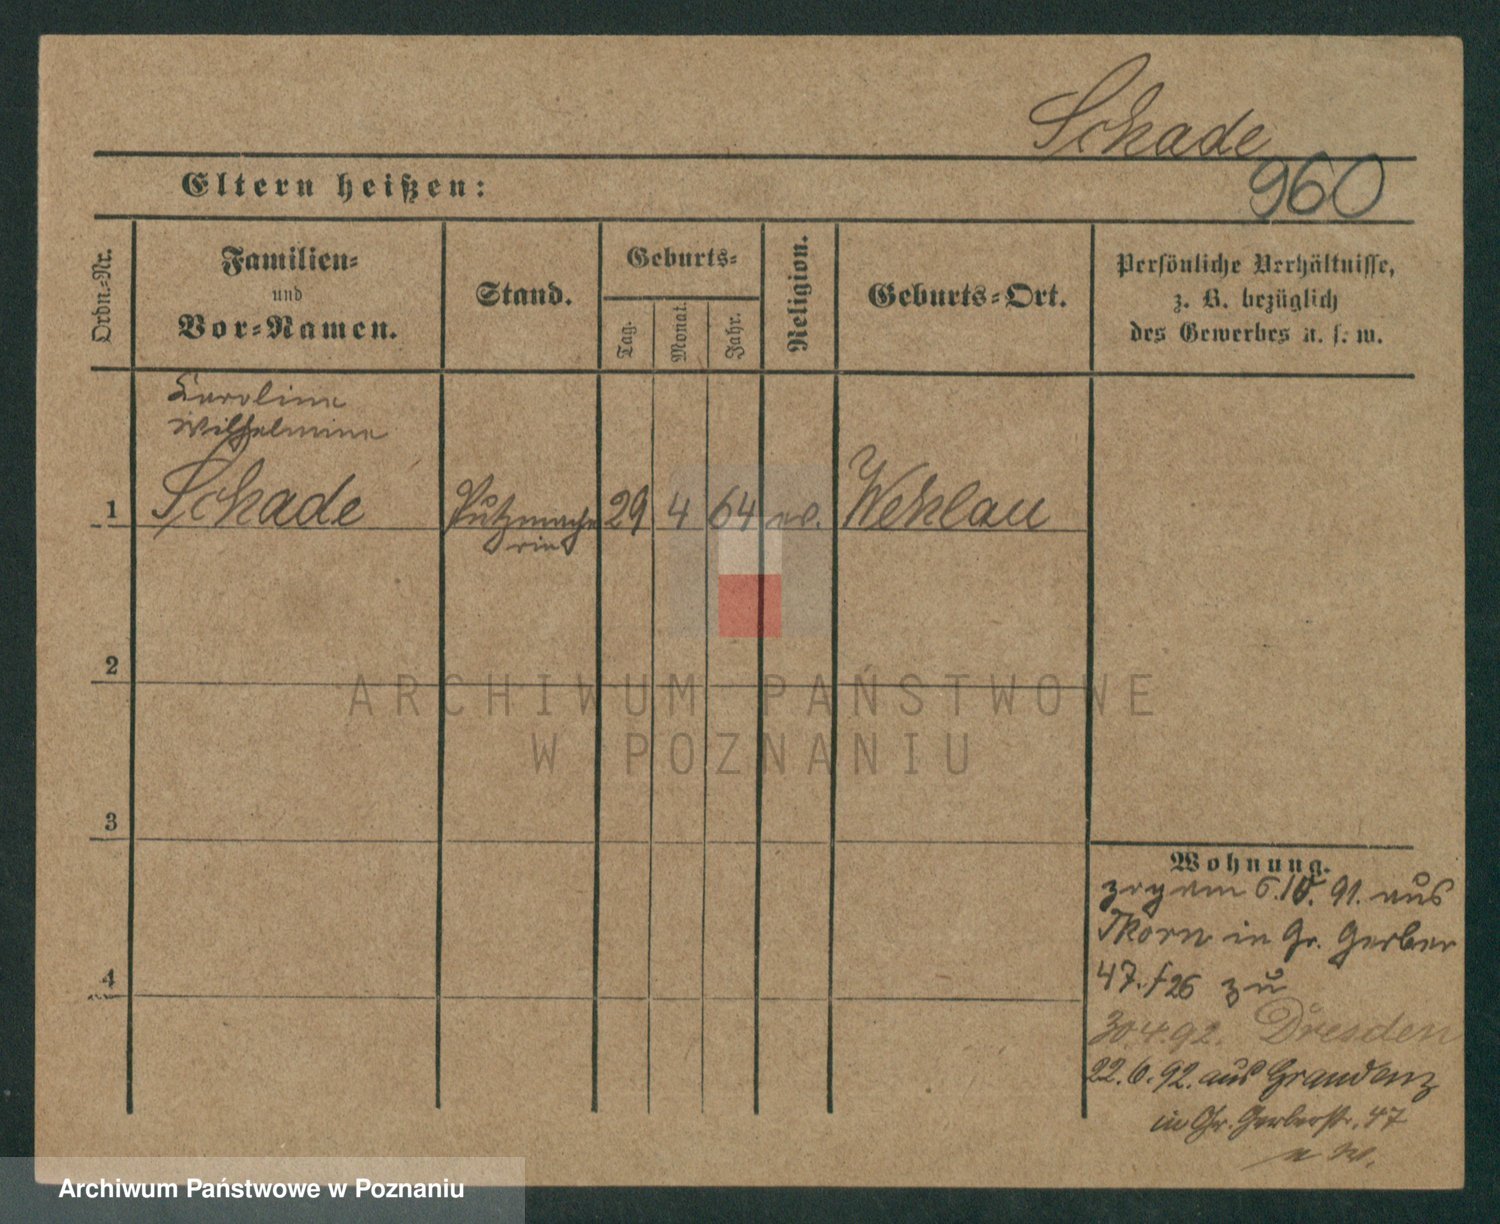 Schade
960
Eltern heißen:
Ordn.-Nr.
Familien-
und
Vor-Namen.
Stand.
Geburts-
Tag.
Monat.
Jahr.
Religion.
Geburts-Ort.
Persönliche Verhältnisse,
z. B. bezüglich
des Gewerbes u. s. w.
Karoline
Wilhelmine
1 Schade Putzmache 29 4 64 ev. Wehlau
rin
2
3
4
Wohnung.
zog am 5.10.91. aus
Thorn in Gr. Gerber
47. f 26 zu
30.4.92. Dresden
22.6.92. aus Graudenz
in Gr. Gerberstr. 47
ARCHIWUM PAŃSTWOWE
W POZNANIU
Archiwum Państwowe w Poznaniu